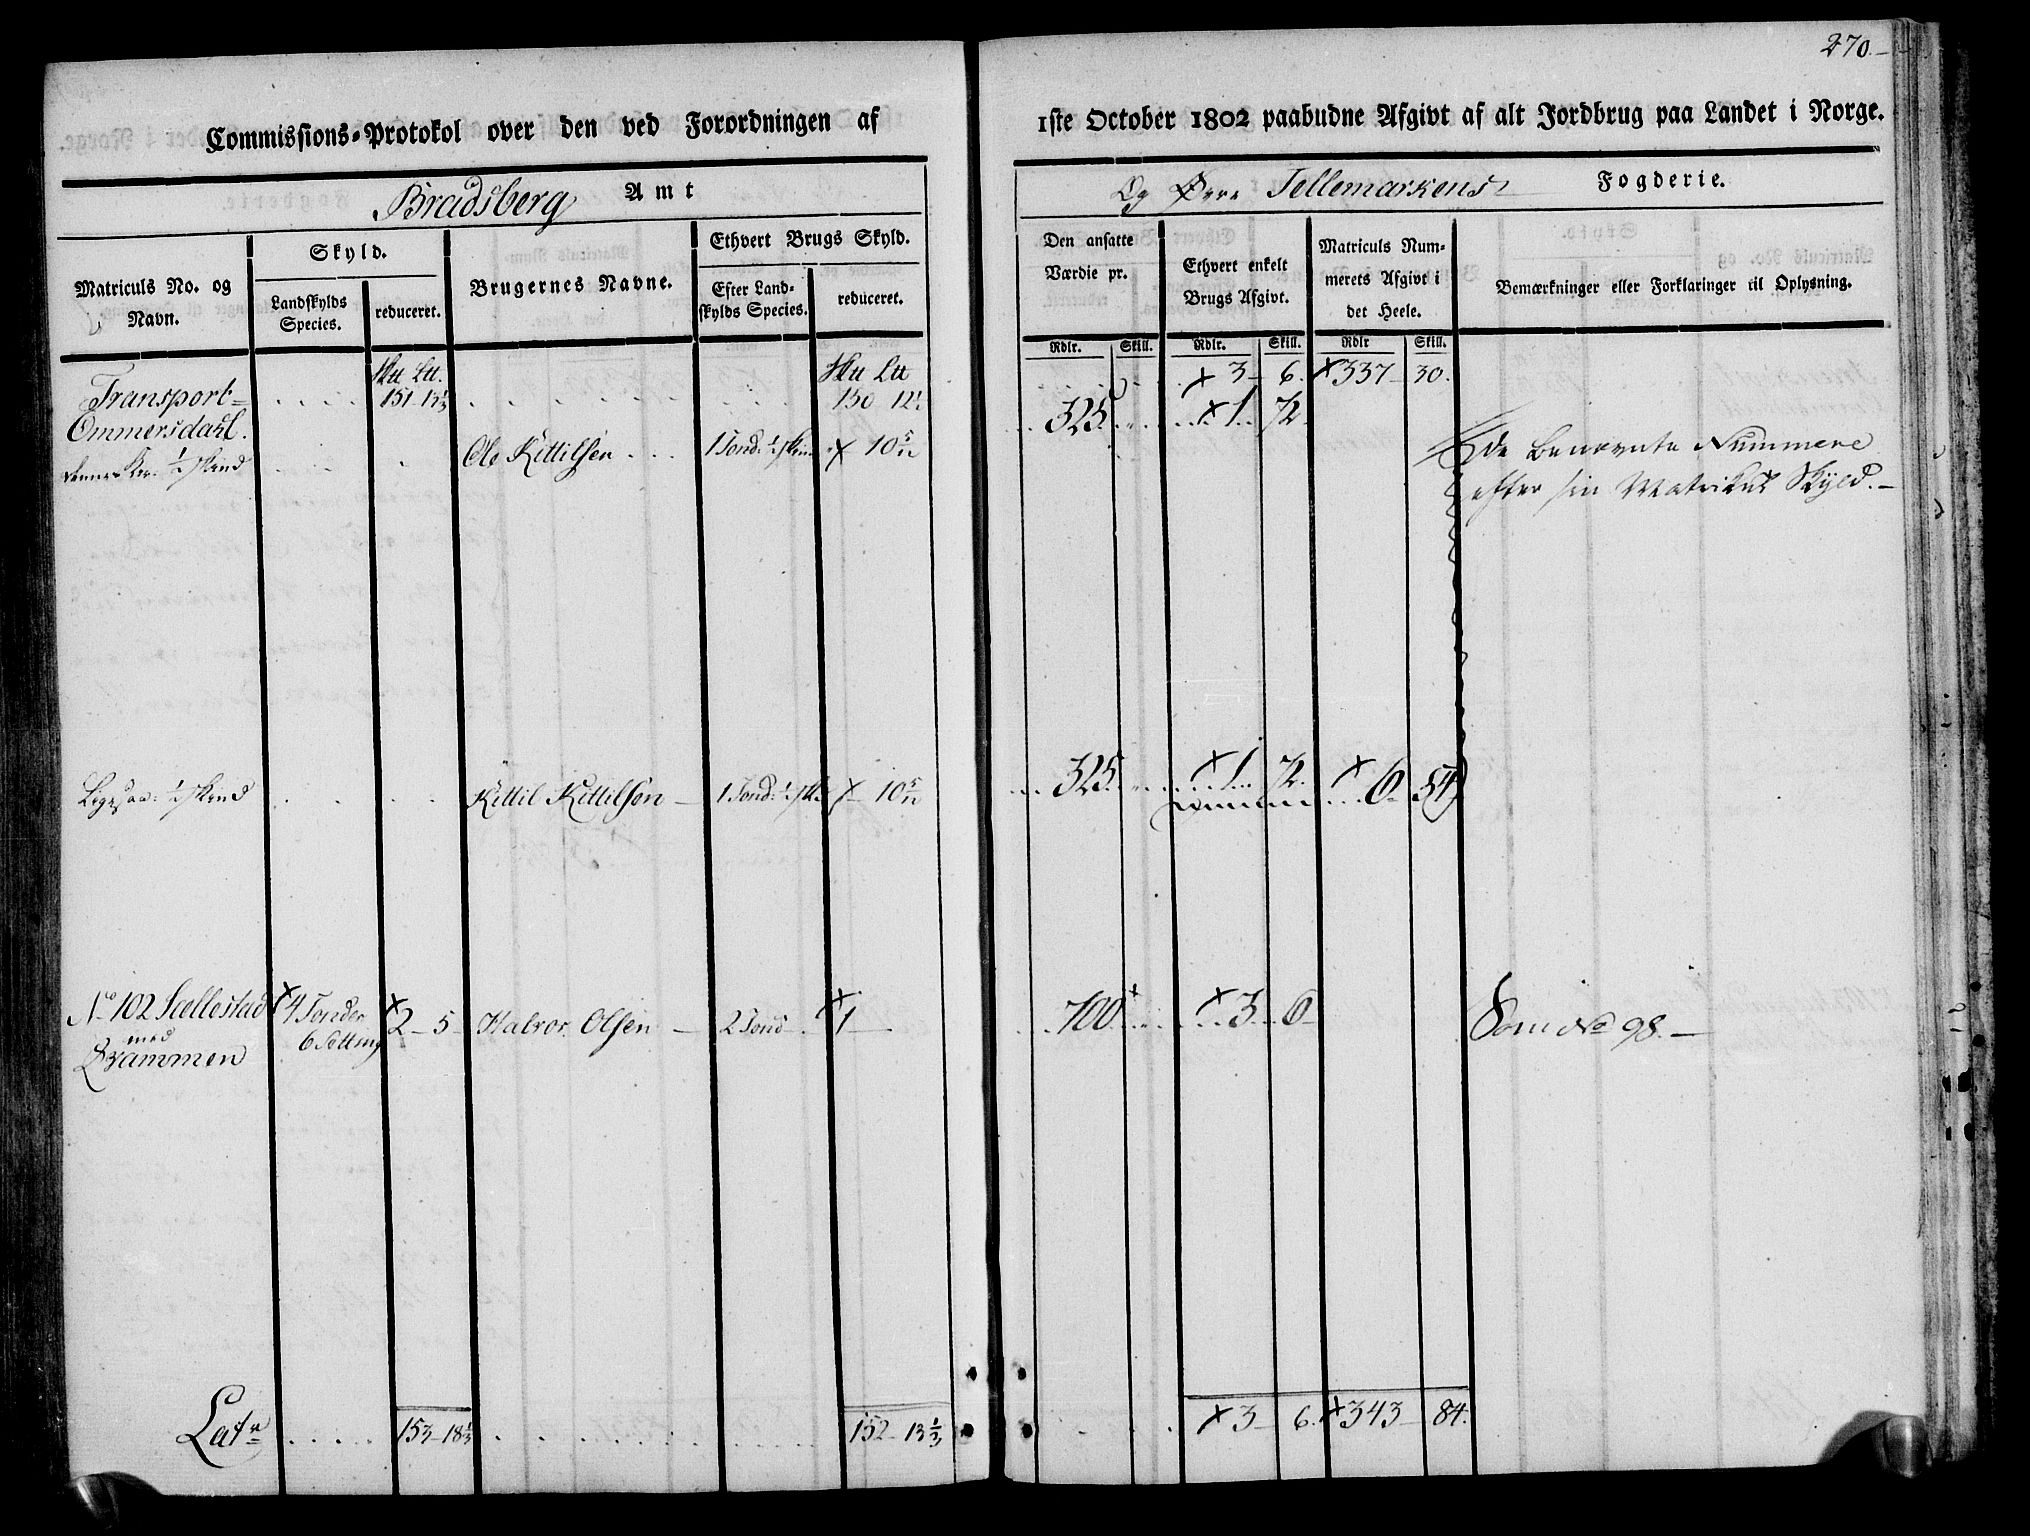 270.
Commissions-Protokol over den ved Forordningen af
1ste October 1802 paabudne Afgivt af alt Jordbrug paa Landet i Norge.
Bradsberg Amt
Og Øvre Tellemarkens Fogderie.
Matriculs No. og Navn.
Skyld.
Landskylds Species.
reduceret.
Brugernes Navne.
Ethvert Brugs Skyld.
Efter Landskylds Species.
reduceret.
Den ansatte Værdie pr.
Ethvert enkelt Brugs Afgivt.
Matriculs Nummerets Afgivt i det Heele.
Bemærkninger eller Forklaringer til Oplysning.
Rdlr. Skill. Rdlr. Skill. Rdlr Skill.
Transport 151 - 13 1/3 150 12 1/2 3 - 6. 337 - 30.
Ommersdahl. 325 1 72
1/2 skind Ole Kittilsen 1 Tond: 1/2 skin 10 5/12
de benævnte Nummere
efter sin Matrikul Skyld. -
Ligesaa: 1/2 skind Kittil Kittilsen - 1 Tond: 1/2 sk 10 5/12 325 1 72. 6 54
No 102 Sællestad 4 Tønder 2 - 5 - Halvor Olsen - 2 Tond 1 - 700 3 6 Som No 98. -
med 6 Setting
Qvammen
Lat 153 - 18 1/3 152 - 13 1/3 3 - 6. 343 - 84.